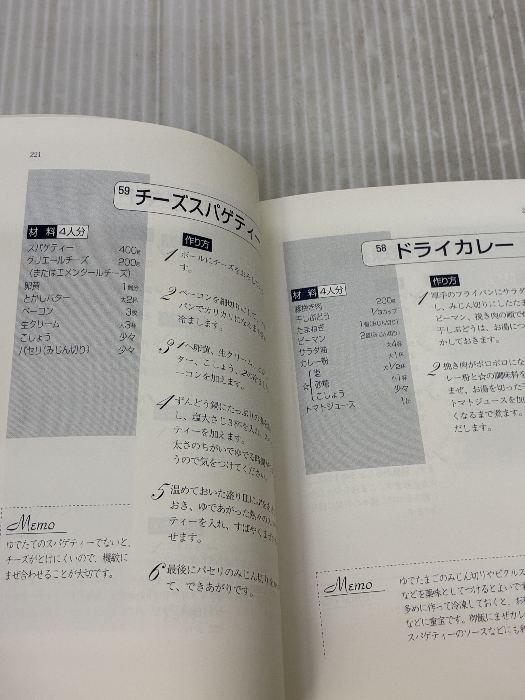 221
59 チーズスパゲティー
材料 4人分
スパゲティー 400g
グリエールチーズ 200g
(またはエメンタールチーズ)
卵黄 1個分
とかしバター 大2杯
ベーコン 3枚
生クリーム 大3杯
こしょう 少々
パセリ(みじん切り) 少々
作り方
1 ボールにチーズを
す。
2 ベーコンを細切りにして、
パンでカリカリになるまで
冷まします。
3 1へ卵黄、生クリーム、
ター、こしょう、2の
ーコンを加えます。
4 ずんどう鍋にたっぷりの
し、塩大さじ3杯を入れ、ス
ティーを加えます。
太さのちがいでゆでる時間が
うので気をつけてください。
5 温めておいた盛り皿に
おき、ゆであがった熱々の
ティーを入れ、すばやくまぜ
せます。
6 最後にパセリのみじん切りを
て、できあがりです。
Memo
ゆでたてのスパゲティーでないと、
チーズがとけにくいので、機敏に
まぜ合わせることが大切です。
58 ドライカレー
材料 4人分
豚挽き肉 200g
干しぶどう 1/3カップ
たまねぎ 1個(みじん切り)
ピーマン 2個(みじん切り)
サラダ油 大4杯
カレー粉 大1杯
☆
塩 大1/2杯
砂糖 小1杯
こしょう 少々
トマトジュース 1缶
作り方
1 厚手のフライパンにサラダ
し、みじん切りにしたたま
ピーマン、挽き肉の順で
干しぶどうは、お湯につ
かしておきます。
2 挽き肉がポロポロにな
レー粉と☆の調味料を
まぜ、お湯を切った干
トマトジュースを加
くなるまで煮ます。
だします。
Memo
ゆでたまごのみじん切りやピクルス
などを薬味としてつけるとよいです
多めに作って冷凍しておくと、お
などに重宝です。御飯にまぜカレ
スパゲティーのソースなどにも